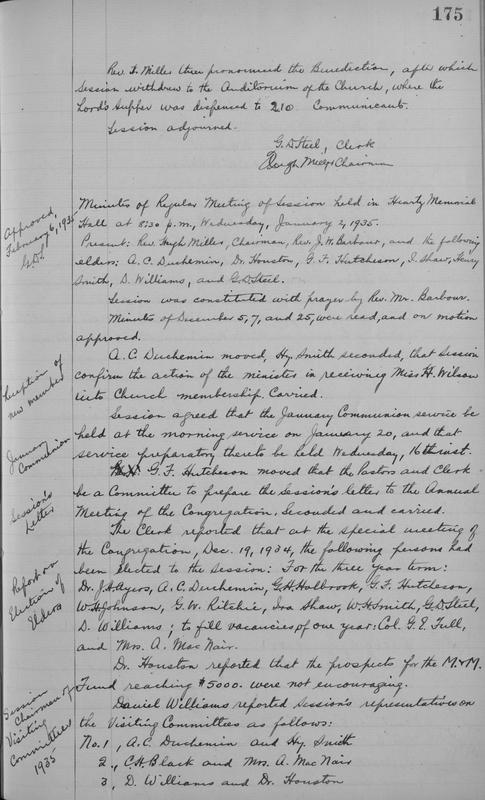 175
Rev. H. Miller then pronounced the Benediction, after which
Session withdrew to the Auditorium of the Church, where the
Lord's Supper was dispensed to 210 Communicants.
Session adjourned.
G. D. Steel, Clerk
Hugh Miller Chairman
Approved,
February 6, 1935
G.D.S.
Minutes of Regular Meeting of Session held in Heartz Memorial
Hall at 8:30 p.m., Wednesday, January 2, 1935.
Present: Rev. Hugh Miller, Chairman, Rev. J. W. Barbour, and the following
elders: A. C. Duchemin, Dr. Houston, G. F. Hutcheson, I. Shaw, Henry
Smith, D. Williams, and G. D. Steel.
Session was constituted with prayer by Rev. Mr. Barbour.
Minutes of December 5, 7, and 25, were read, and on motion
approved.
Reception of
new member
A. C. Duchemin moved, Hy. Smith seconded, that Session
confirm the action of the minister in receiving Miss H. Wilson
into Church membership. Carried.
January
Communion
Session agreed that the January Communion service be
held at the morning service on January 20, and that
service preparatory thereto be held Wednesday, 16th inst.
Session's
Letter
G. F. Hutcheson moved that the Pastors and Clerk
be a Committee to prepare the Session's letter to the Annual
Meeting of the Congregation. Seconded and carried.
Report on
Election of
Elders
The Clerk reported that at the special meeting of
the Congregation, Dec. 19, 1934, the following persons had
been elected to the Session: For the three year term:
Dr. J. H. Ayers, A. C. Duchemin, G. H. Holbrook, G. F. Hutcheson,
W. H. Johnson, G. W. Ritchie, Ira Shaw, W. H. Smith, G. D. Steel,
D. Williams; to fill vacancies of one year: Col. G. E. Full,
and Mrs. A. MacNair.
Dr. Houston reported that the prospects for the M. & M.
Fund reaching $5000. were not encouraging.
Session
Chairmen of
Visiting
Committees
1935
Daniel Williams reported Session's representatives on
the Visiting Committees as follows:
No. 1, A. C. Duchemin and Hy. Smith
2, C. H. Black and Mrs. A. MacNair
3, D. Williams and Dr. Houston